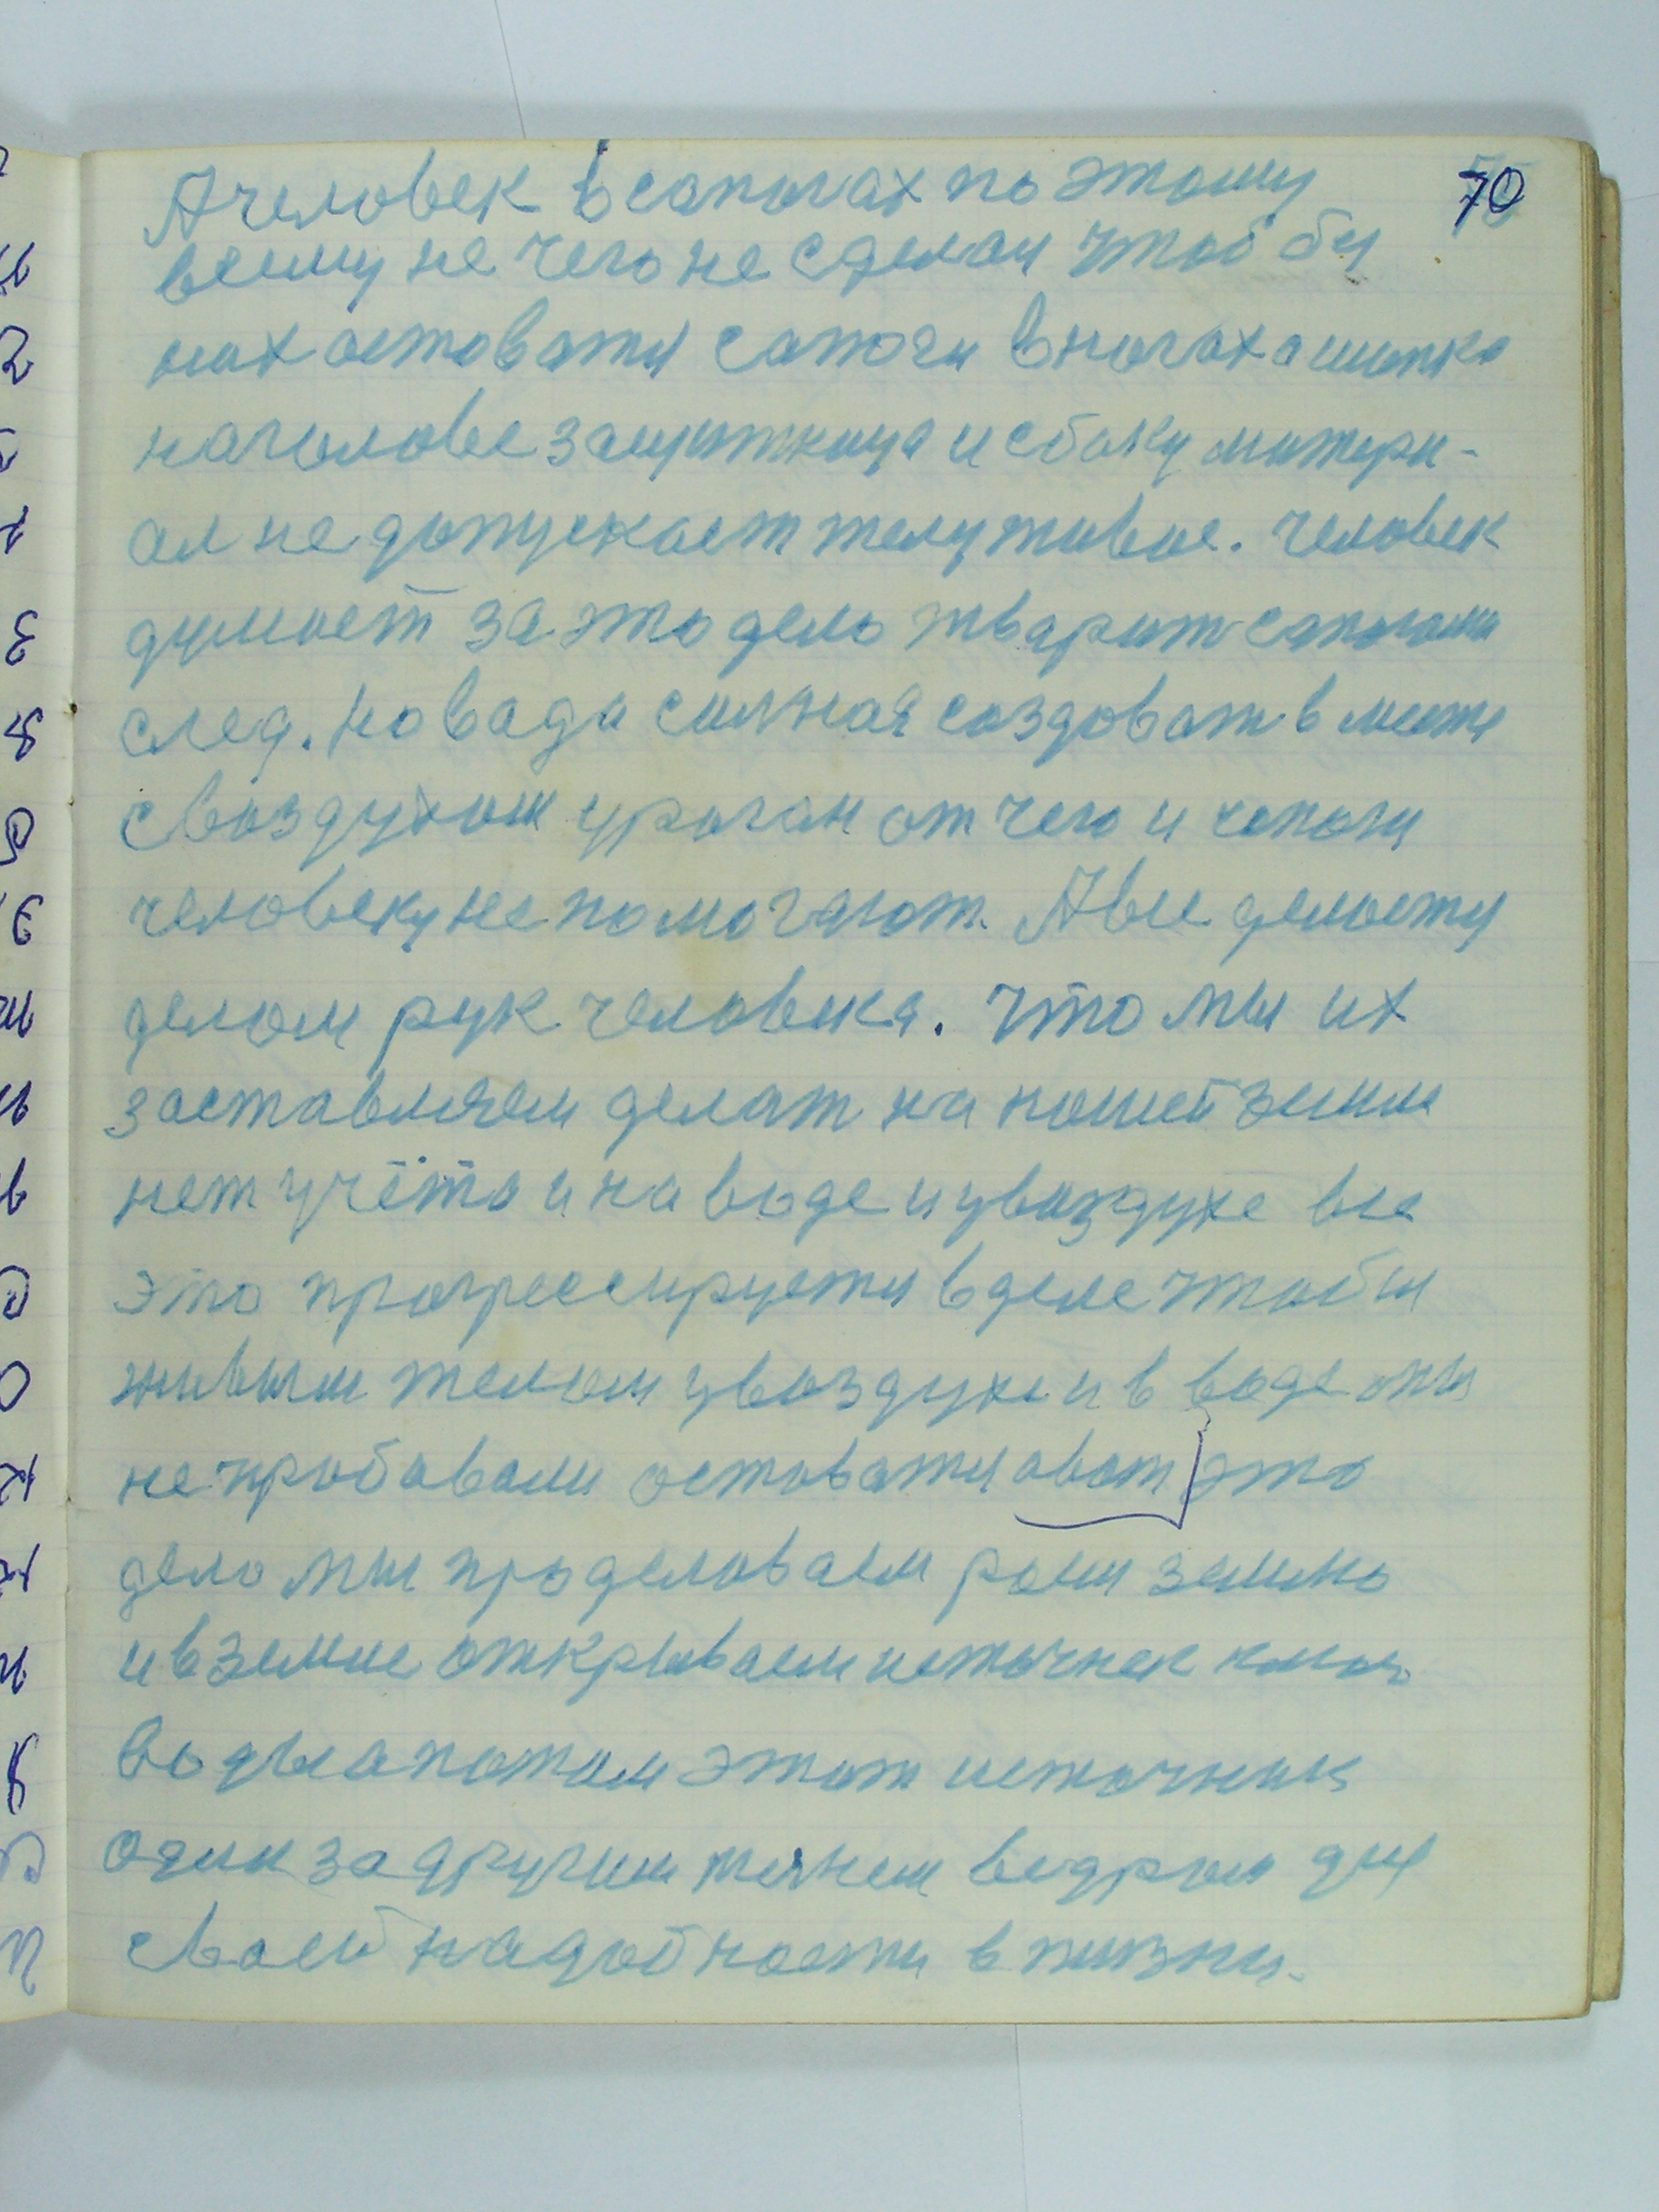 70
А человек в сапогах по этому
всему не чего не сделал чтоб бы
остоватся сапоги в ногах а шапка
наголове защитница и сбоку матери-
ал не допускает телу живое. человек
думает за это дело тварит сапогами
след. но вада силная создоват в месте
с воздухом ураган от чего и сапоги
человеку не помогают. А все делается
делом рук человека. что мы их
заставляем делат на нашей земле
нет учёта и на воде и увоздухе все
это прогрессируется вделе чтобы
живым телом увоздухе и в воде мы
не пробовали остоватся авот это
дело мы проделоваем роем землю
и в земле открываем источник
воды а потом этот источник
один за другим тянем ведром для
своей надобности в жизни.